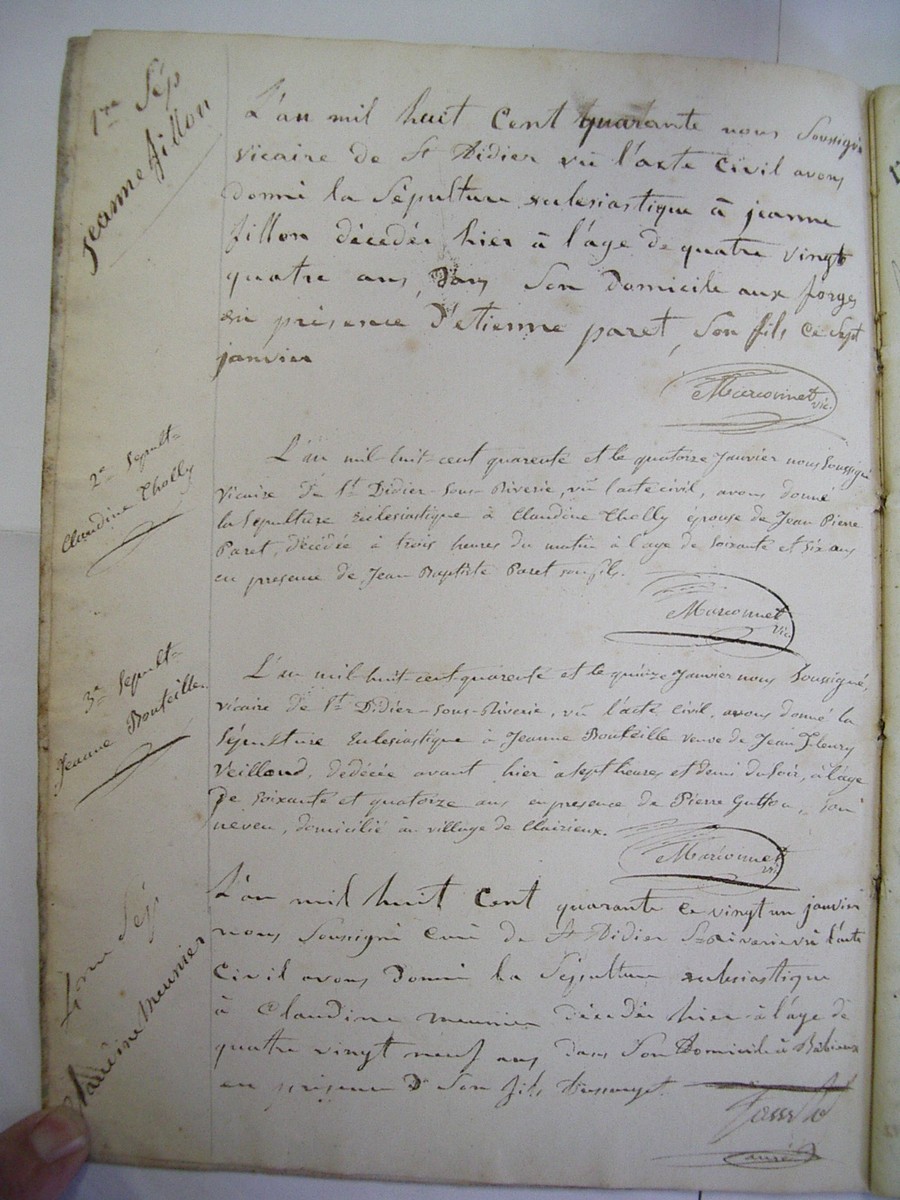 1re Sép
jeanne fillon
L'an mil huit Cent quarante nous Soussigné
vicaire de St Didier vû l'acte Civil avons
donné la Sépulture eclesiastique à jeanne
fillon décedée hier à l'age de quatre vingt
quatre ans, dans Son Domicile aux forges
en présence D'etienne paret, Son fils ce Sept
janvier
Marconnet
vic.
2e Sepult-
Claudine Cholly
L'an mil-huit-cent quarente et le quatorze Janvier nous Soussigné
vicaire de St Didier-Sous-Riverie, vû l'acte civil, avons donné
la Sépulture Eclesiastique à Claudine Cholly épouse de Jean Pierre
Paret, décédée à trois heures du matin à l'age de Soixante et Six ans
en presence de Jean Baptiste Paret son fils.
Marconnet
vic.
3e Sepult-
Jeanne Bouteille
L'an mil-huit-cent quarente et le quinze Janvier nous Soussigné,
vicaire de St Didier-Sous-Riverie, vû l'acte civil, avons donné la
Sépulture Eclesiastique à Jeanne Bouteille veuve de Jean Fleury
Veilloud, dedécée avant hier à sept heures et demi du Soir, à l'age
de Soixante et quatorze ans en presence de Pierre Son
neveu, domicilié au village de
Marconnet
vic.
4me Sép
Claudine Meunier
L'an mil huit Cent quarante ce vingt un janvier
nous Soussigné curé de St Didier Ss Riverie vû l'acte
Civil avons Donné la Sépulture eclesiastique
à Claudine meunier décédée hier à l'age de
quatre vingt neuf ans dans Son Domicile à
en présence De Son fils
curé